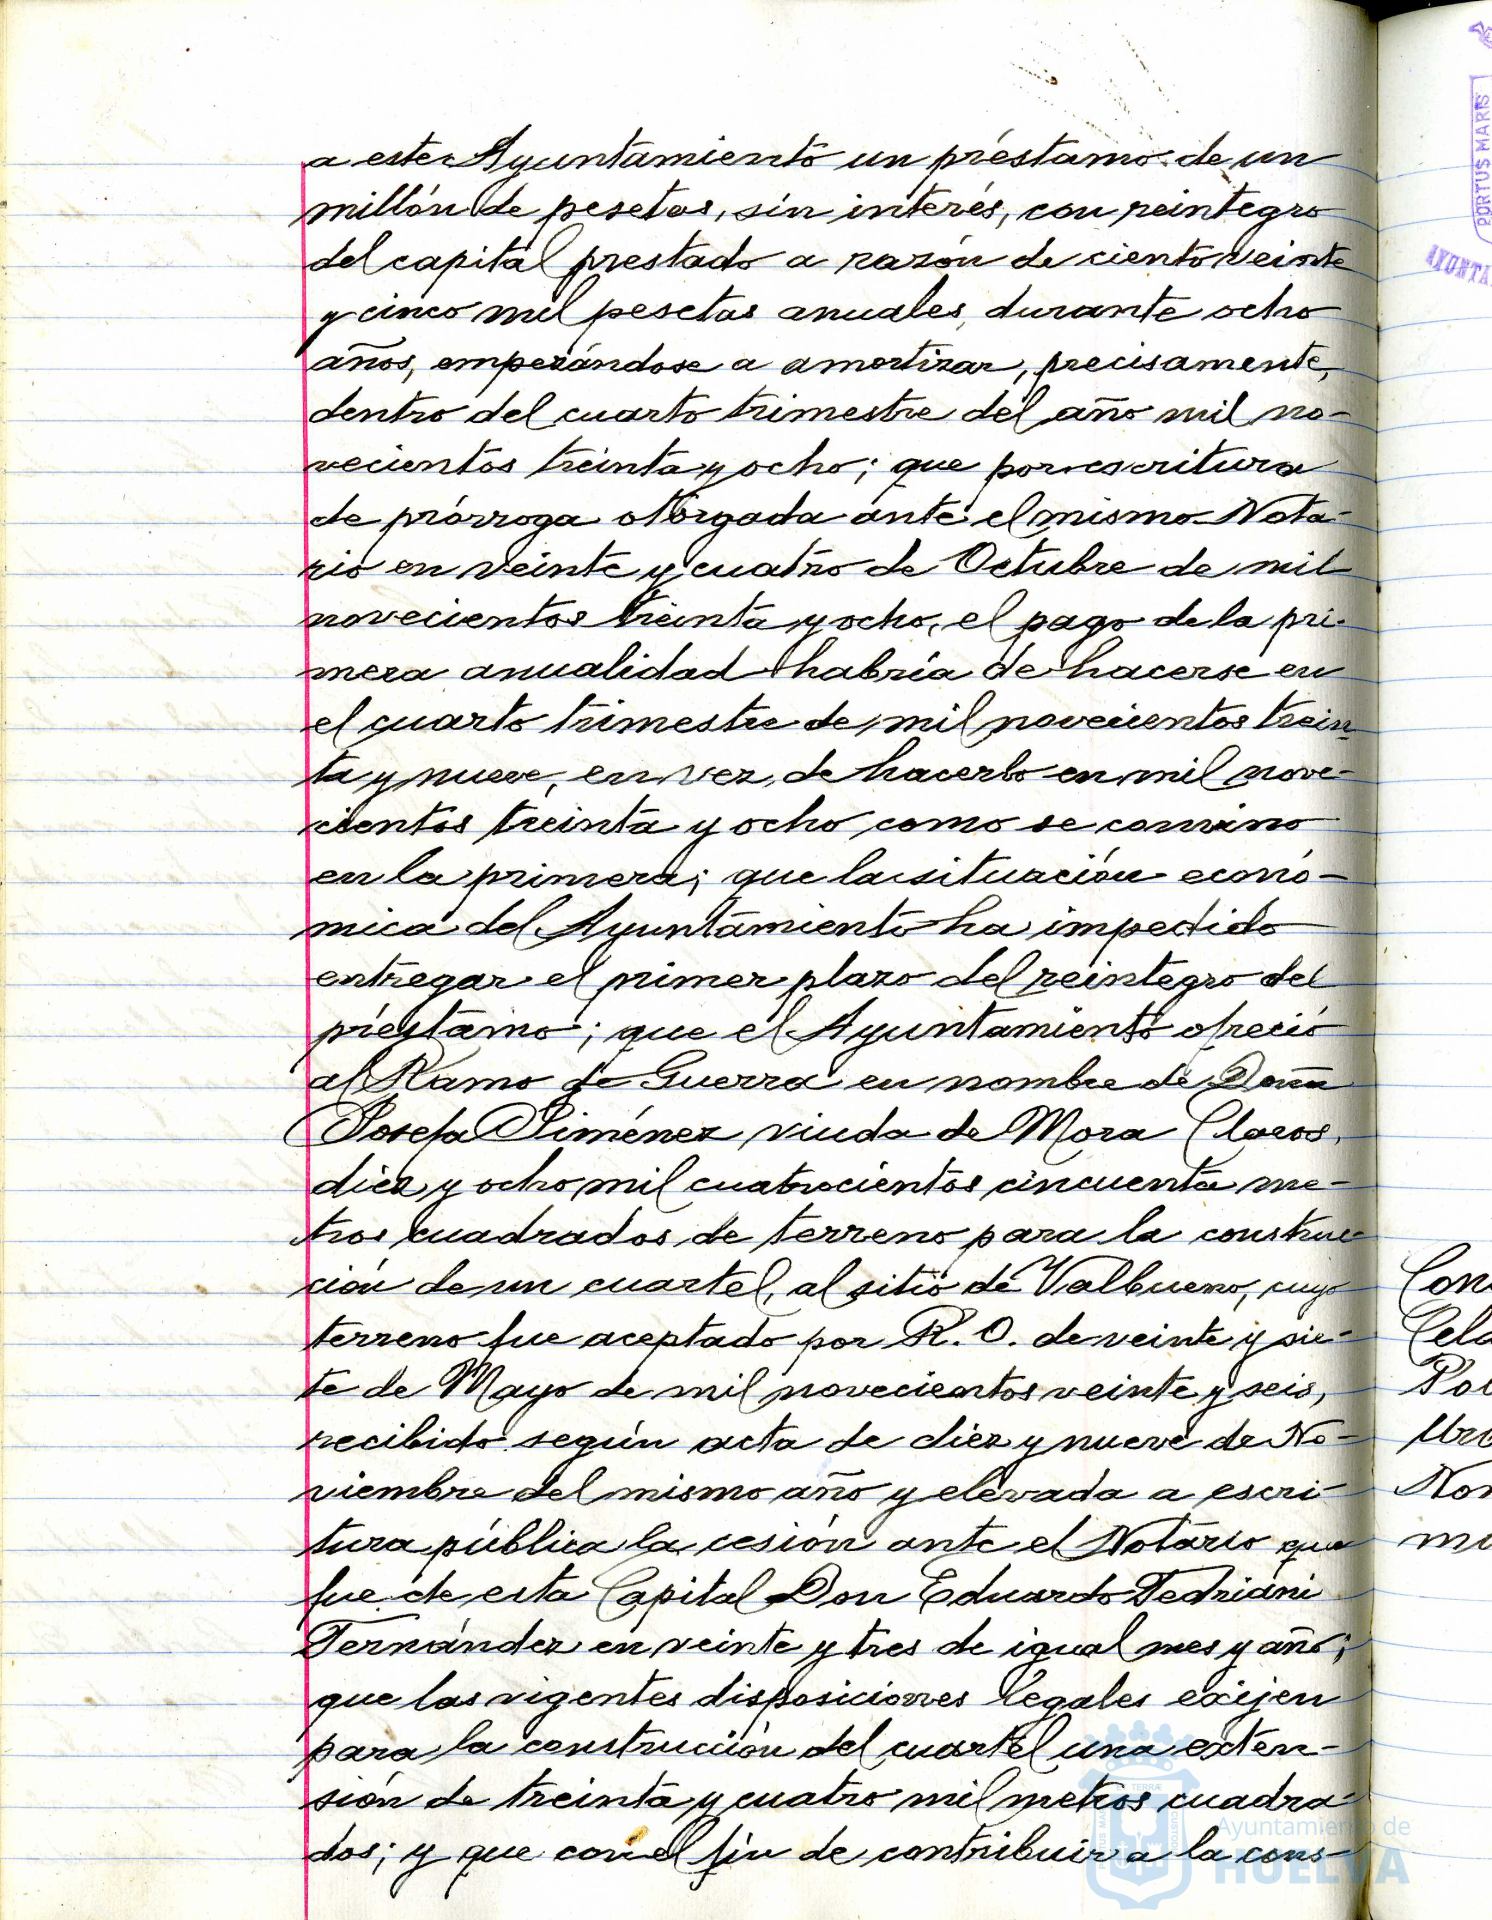 a este Ayuntamiento un préstamo de un
millón de pesetas, sin interés, con reintegro
del capital prestado a razón de ciento veinte
y cinco mil pesetas anuales, durante ocho
años, empezándose a amortizar, precisamente,
dentro del cuarto trimestre del año mil no-
vecientos treinta y ocho; que por escritura
de prórroga otorgada ante el mismo Nota-
rio en veinte y cuatro de Octubre de mil
novecientos treinta y ocho, el pago de la pri-
mera anualidad habría de hacerse en
el cuarto trimestre de mil novecientos trein-
ta y nueve, en vez de hacerlo en mil nove-
cientos treinta y ocho como se convino
en la primera; que la situación econó-
mica del Ayuntamiento ha impedido
entregar el primer plazo del reintegro del
préstamo; que el Ayuntamiento ofreció
al Ramo de Guerra en nombre de Doña
Josefa Jiménez viuda de Mora Claros,
diez y ocho mil cuatrocientos cincuenta me-
tros cuadrados de terreno para la construc-
ción de un cuartel, al sitio de Valbueno, cuyo
terreno fue aceptado por R. O. de veinte y sie-
te de Mayo de mil novecientos veinte y seis,
recibido según acta de diez y nueve de No-
viembre del mismo año y elevada a escri-
tura pública la cesión ante el Notario que
fue de esta Capital Don Eduardo Fedriani
Fernández en veinte y tres de igual mes y año;
que las vigentes disposiciones legales exijen
para la construcción del cuartel una exten-
sión de treinta y cuatro mil metros cuadra-
dos; y que con el fin de contribuir a la cons-
PORTUS MARIS
AYUNTA
Con
Cela
Nor
Ayuntamiento de
HUELVA